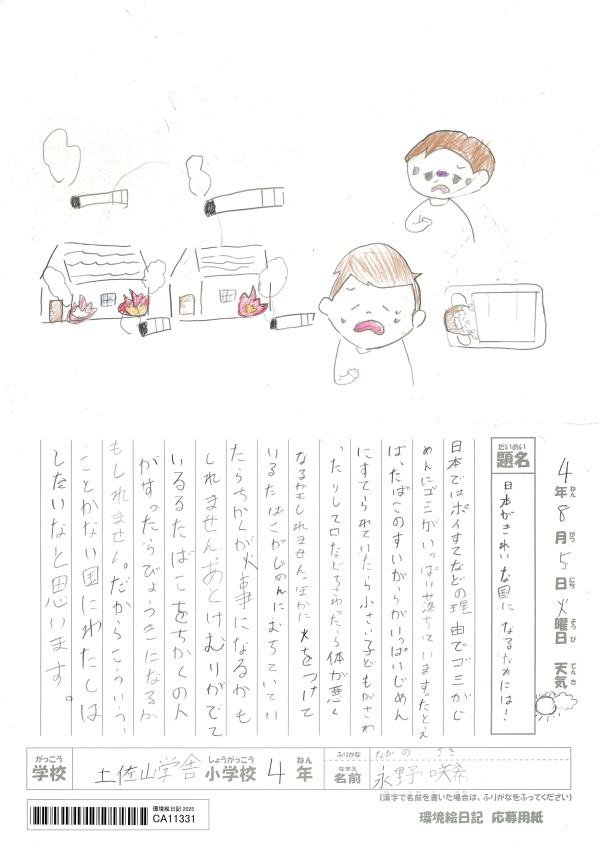 4年8月5日火曜日 天気
ねん がつ にち ようび てんき
だいめい
題名
日本がきれいな国になるためには！
日本ではポイすてなどの理由でゴミがじ
めんにゴミがいっぱい落ちています。たとえ
ば、たばこのすいがらがいっぱいじめん
にすてられていたら小さい子どもがさわ
ったりして口などもさわったら体が悪く
なるかもしれません。ほかに火をつけて
いるたばこがじめんにおちていてい
たらちかくが火事になるかも
しれません。あとけむりがでて
いるるたばこをちかくの人
がすったらびょうきになるか
もしれません。だからこういう、
ことがない国にわたしは
したいなと思います。
がっこう
学校
土佐山学舎
しょうがっこう
小学校
4
ねん
年
ふりがな
ながの さき
なまえ
名前
永野 咲希
(漢字で名前を書いた場合は、ふりがなをふってください)
環境絵日記 2025
CA11331
環境絵日記 応募用紙